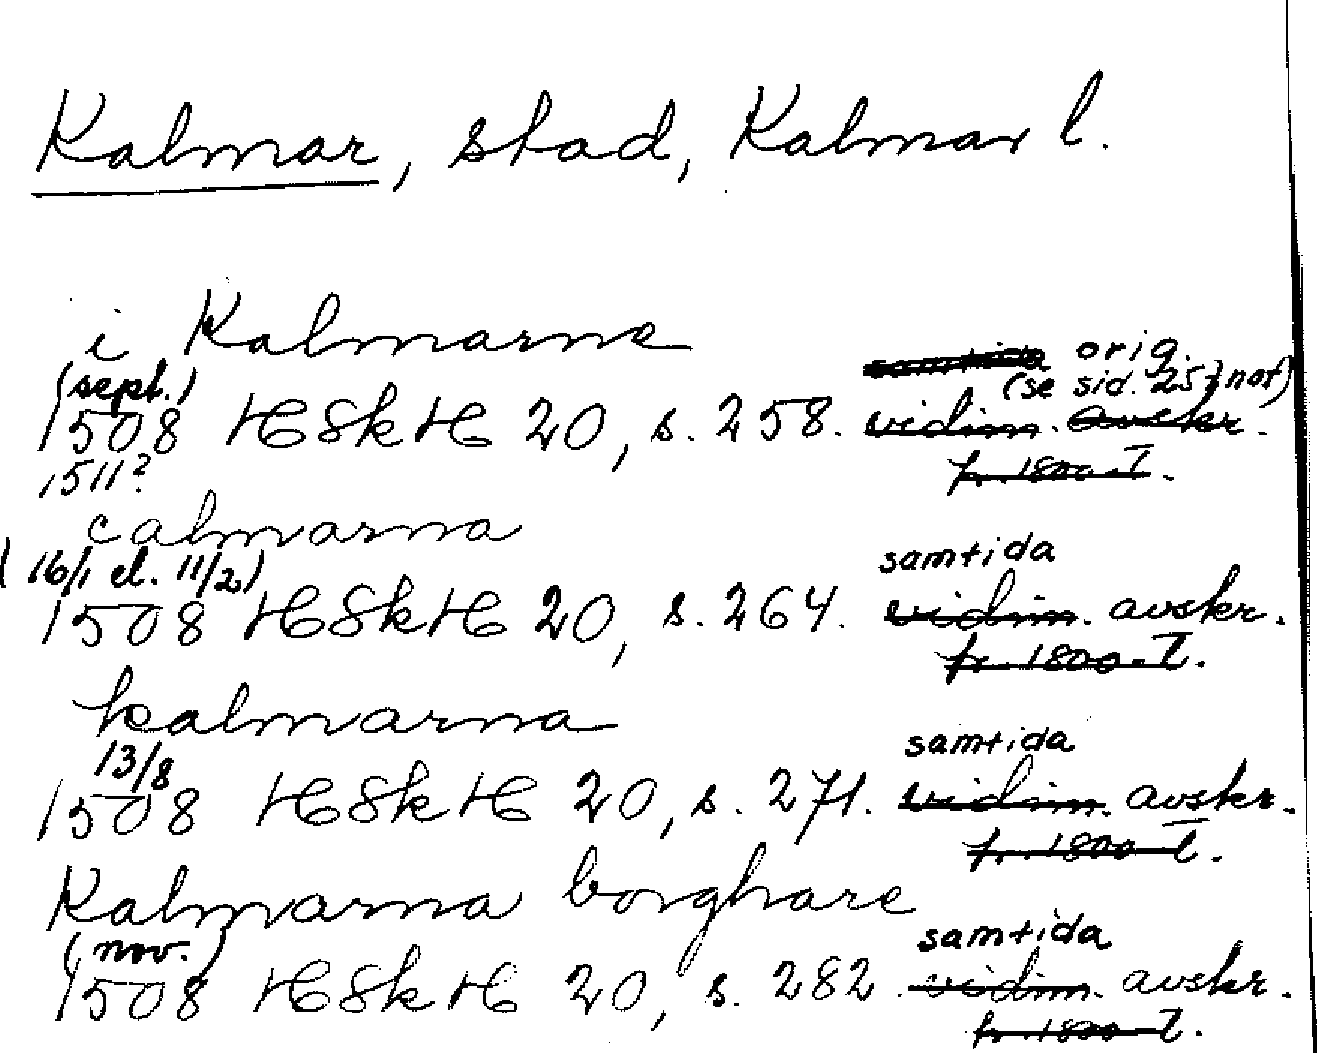 Kalmar, stad, Kalmar l.
i Kalmarne
samtida orig.
(sept.) (se sid. 257 not)
1508 HSkH 20, s. 258. vidim. avskr.
1511? fr. 1800-T.
calmarna
(16/1 el. 11/2) samtida
1508 HSkH 20, s. 264. vidim. avskr.
fr. 1800-T.
kalmarna
13/8 samtida
1508 HSkH 20, s. 271. vidim. avskr.
fr. 1800-T.
Kalmarna borghare
(nov.) samtida
1508 HSkH 20, s. 282. vidim. avskr.
fr. 1800-T.